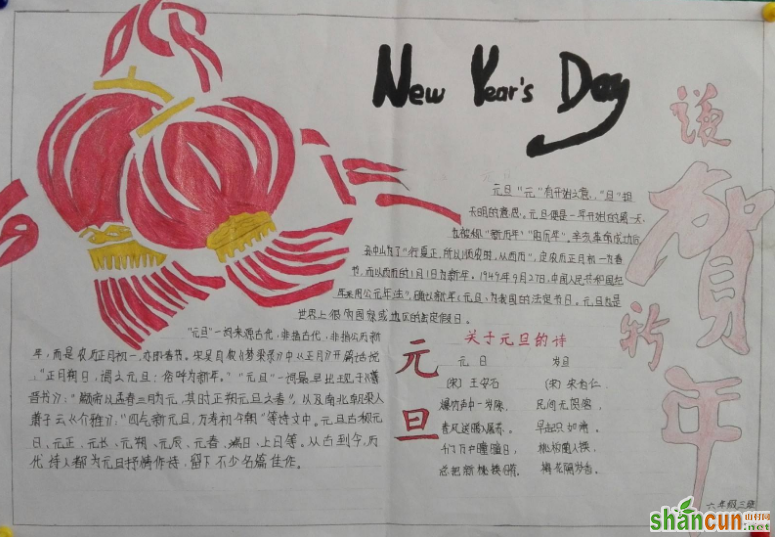 New Year's Day
谦
贺
新
年
元旦"元"有开始之意,"旦"指
天明的意思。元旦便是一年开始的第一天,
也被称"新历年""阳历年"。辛亥革命成功后,
孙中山为了"行夏正,所以顺农时,从西历",定农历正月初一为春
节,而以西历的1月1日为新年,1949年9月27日,中国人民共和国纪
年采用公元年法,确认新年元旦,为我国的法定节日。元旦也是
世界上很多国家或地区的法定假日。
"元旦"一词来源古代,非指古代,非指公历新
年,而是农历正月初一,亦即春节。宋吴自牧《梦梁录》中从正月》开篇话说
:"正月朔日,谓之元旦;俗呼为新年。""元旦"一词最早出现于《晋
书》:"颛帝以孟春三月为元,其时正朔元旦之春",以及南北朝梁人
萧子云《介雅》:"四气新元旦,万寿初今朝"等诗文中。元旦古称元
日、元正、元长、元朔、元辰、元春、端日、上日等。从古到今,历
代诗人都为元旦抒情作诗,留下不少名篇佳作。
元
旦
关于元旦的诗
元日
(宋)王安石
爆竹声中一岁除,
春风送暖入屠苏。
千门万户曈曈日,
总把新桃换旧符。
岁旦
(宋)宋伯仁
居间无贺客,
早起只如常。
桃板随人换,
梅花隔岁香。
六年级三班
shancun 山村网
.net